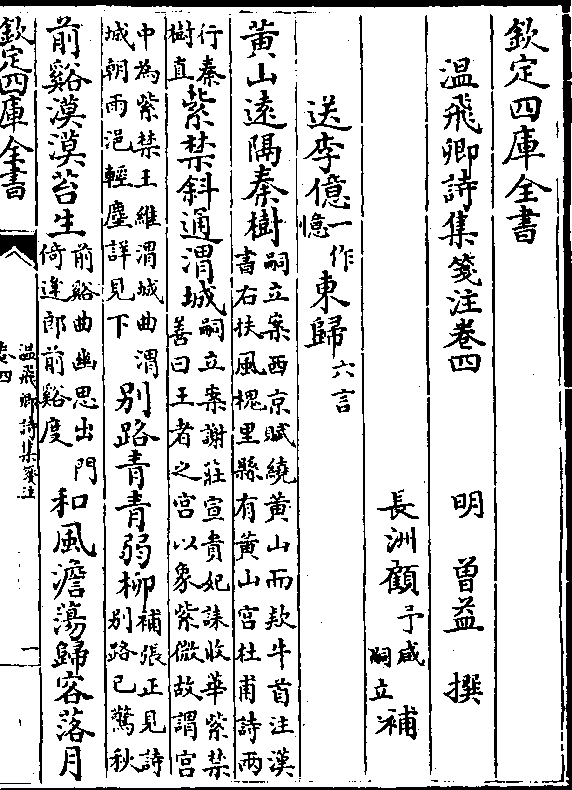 欽定四庫全書
溫飛卿詩集箋注卷四
明 曾益 撰
長洲顧 予咸 嗣立 補
送李億一作憶東歸六言
黃山遠隔秦樹嗣立案西京賦繞黃山而款牛首注漢書右扶風槐里縣有黃山宮杜甫詩兩
行秦樹直紫禁斜通渭城嗣立案謝莊宣貴妃誄收華紫禁善曰王者之宮以象紫微故謂宮
中為紫禁王維渭城曲渭城朝雨浥輕塵詳見下别路青青弱柳補張正見詩别路已驚秋
前谿漠漠苔生前谿曲幽思出門倚逢郎前谿度和風澹蕩歸客落月
欽定四庫全書
溫飛卿詩集箋注
卷四
一